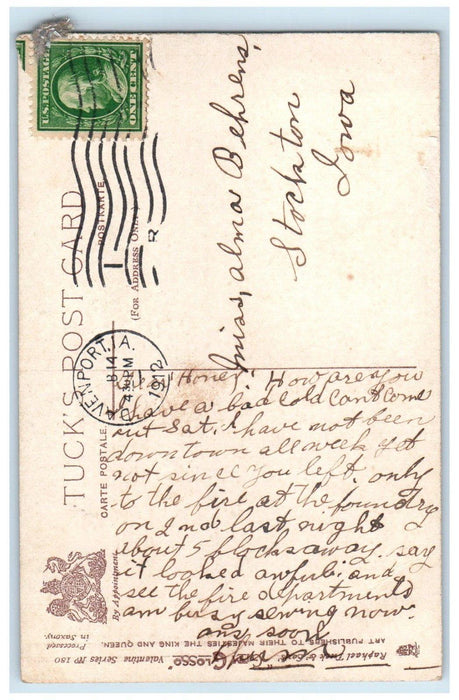 U.S. POSTAGE
ONE CENT
TUCK'S POST CARD
CARTE POSTALE.
POSTKARTE
(FOR ADDRESS ONLY.)
DAVENPORT, IA.
4 PM
1912
Miss, Alma Behrens,
Stockton
Iowa
Dear "Honey". How are you
I have a bad cold cant come
out Sat. I have not been
down town all week yet
not since you left. only
to the fire at the foundry
on 2nd last night
about 5 blocks away. say
it looked awful. and
see the fire departments
am busy sewing now.
ans soon
By Appointment.
Raphael Tuck & Sons'
"GLOSSO"
Valentine Series Nº 180
ART PUBLISHERS TO THEIR MAJESTIES THE KING AND QUEEN.
Processed in Saxony.